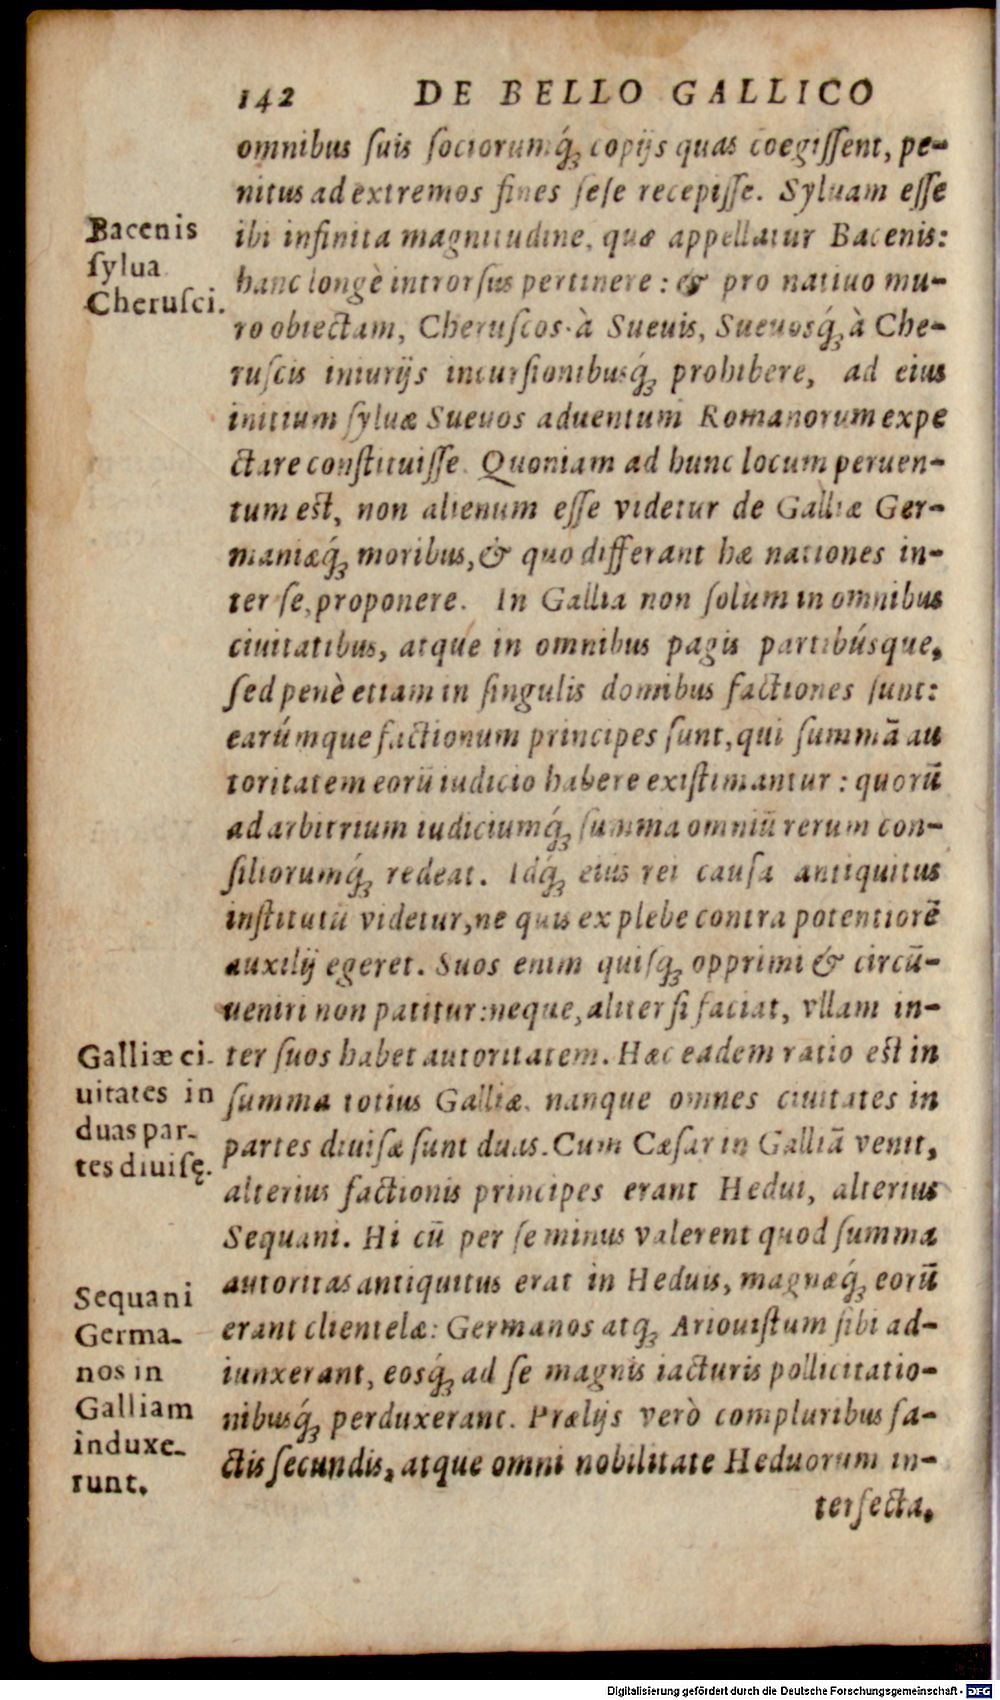 142 DE BELLO GALLICO
omnibus ſuis ſociorumq́ꝫ copijs quas coegiſſent, pe-
nitus ad extremos fines ſeſe recepiſſe. Syluam eſſe
ibi infinita magnitudine, quæ appellatur Bacenis:
hanc longè introrſus pertinere: & pro natiuo mu-
ro obiectam, Cheruſcos à Sueuis, Sueuosq́ꝫ à Che-
ruſcis iniurijs incurſionibusq́ꝫ prohibere, ad eius
initium ſyluæ Sueuos aduentum Romanorum expe
ctare conſtituiſſe. Quoniam ad hunc locum peruen-
tum est, non alienum eſſe videtur de Galliæ Ger-
maniæq́ꝫ moribus, & quo differant hæ nationes in-
ter ſe, proponere. In Gallia non ſolum in omnibus
ciuitatibus, atque in omnibus pagis partibúsque,
ſed penè etiam in ſingulis domibus factiones ſunt:
earúmque factionum principes ſunt, qui ſummā au
toritatem eorū iudicio habere exiſtimantur: quorū
ad arbitrium iudiciumq́ꝫ ſumma omniū rerum con-
ſiliorumq́ꝫ redeat. Idq́ꝫ eius rei cauſa antiquitus
inſtitutū videtur, ne quis ex plebe contra potentiorē
auxilij egeret. Suos enim quiſqꝫ opprimi & circū-
ueniri non patitur: neque, aliter ſi faciat, vllam in-
ter ſuos habet autoritatem. Hæc eadem ratio est in
ſumma totius Galliæ. nanque omnes ciuitates in
partes diuiſæ ſunt duas. Cum Cæſar in Galliā venit,
alterius factionis principes erant Hedui, alterius
Sequani. Hi cū per ſe minus valerent quod ſumma
autoritas antiquitus erat in Heduis, magnæq́ꝫ eorū
erant clientelæ: Germanos atqꝫ Ariouiſtum ſibi ad-
iunxerant, eosq́ꝫ ad ſe magnis iacturis pollicitatio-
nibusq́ꝫ perduxerant. Prælijs verò compluribus fa-
ctis ſecundis, atque omni nobilitate Heduorum in-
terfecta,
Bacenis
ſylua
Cheruſci.
Galliæ ci-
uitates in
duas par-
tes diuiſę.
Sequani
Germa-
nos in
Galliam
induxe-
runt.
Digitalisierung gefördert durch die Deutsche Forschungsgemeinschaft - DFG